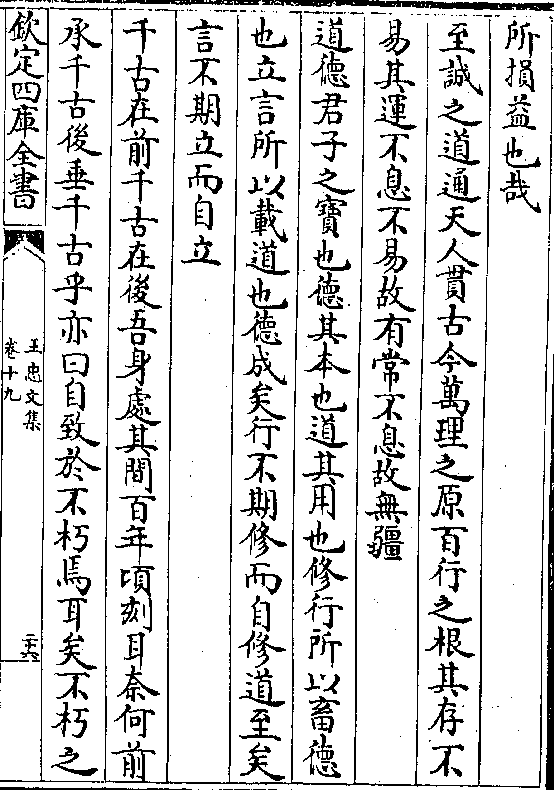 所損益也哉
至誠之道通天人貫古今萬理之原百行之根其存不
易其運不息不易故有常不息故無疆
道德君子之寶也德其本也道其用也修行所以畜德
也立言所以載道也德成矣行不期修而自修道至矣
言不期立而自立
千古在前千古在後吾身處其間百年頃刻耳奈何前
承千古後垂千古乎亦曰自致於不朽焉耳矣不朽之
欽定四庫全書
王忠文集
卷十九
二十六